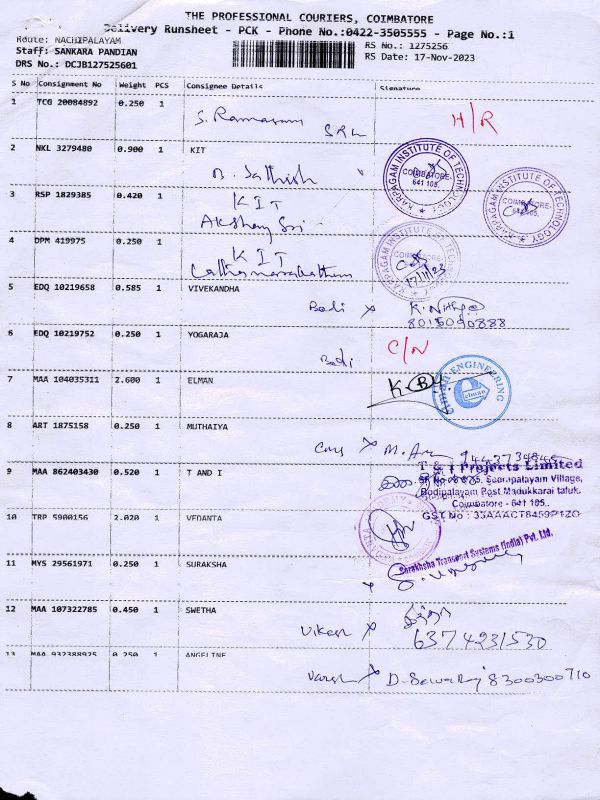 THE PROFESSIONAL COURIERS, COIMBATORE
Delivery Runsheet - PCK - Phone No.:0422-3505555 - Page No.:1
Route: NACHIPALAYAM
RS No.: 1275256
Staff: SANKARA PANDIAN
RS Date: 17-Nov-2023
DRS No.: DCJB127525601
S No Consignment No Weight PCS Consignee Details Signature
1 TCG 20084892 0.250 1
H/R
2 NKL 3279480 0.900 1 KIT
B. Sathish
KARPAGAM INSTITUTE OF TECHNOLOGY
COIMBATORE-
641 105.
3 RSP 1829385 0.420 1 KIT
Akshay Sri
KARPAGAM INSTITUTE OF TECHNOLOGY
COIMBATORE-
4 DPM 419975 0.250 1 KIT
KARPAGAM INSTITUTE OF TECHNOLOGY
17/11/23
5 EDQ 10219658 0.585 1 VIVEKANDHA
Badi K. Nithya
8015090888
6 EDQ 10219752 0.250 1 YOGARAJA
Badi C/N
7 MAA 104035311 2.600 1 ELMAN
K.B
ENGINEERING
elman
8 ART 1875158 0.250 1 MUTHAIYA
9 MAA 862403430 0.520 1 T AND I
T & I Projects Limited
Seerapalayam Village,
Bodipalayam Post, Madukkarai taluk.
Coimbatore - 641 105.
10 TRP 5900156 2.020 1 VEDANTA
Suraksha Transport Systems (India) Pvt. Ltd.
11 MYS 29561971 0.250 1 SURAKSHA
12 MAA 107322785 0.450 1 SWETHA
6374231530
13 MAA 932388925 0.250 1 ANGELINE
8300300710